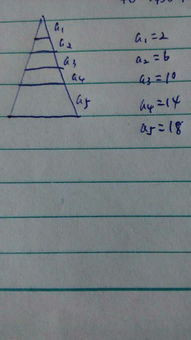 a₁
a₂
a₃
a₄
a₅
a₁=2
a₂=6
a₃=10
a₄=14
a₅=18